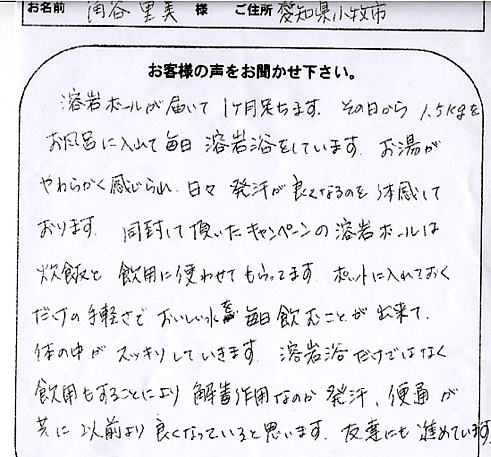 お名前 涌谷里美 様 ご住所 愛知県小牧市
お客様の声をお聞かせ下さい。
溶岩ボールが届いて1ヶ月足ちます。その日から1.5kgを
お風呂に入れて毎日溶岩浴をしています。お湯が
やわらかく感じられ、日々発汗が良くなるのを体感して
おります。同封して頂いたキャンペーンの溶岩ボールは
炊飯と飲用に使わせてもらってます。ポットに入れておく
だけの手軽さでおいしい水を毎日飲むことが出来て、
体の中がスッキリしていきます。溶岩浴だけではなく
飲用もすることにより解毒作用なのか発汗、便通が
共に以前より良くなっていると思います。友達にも進めています